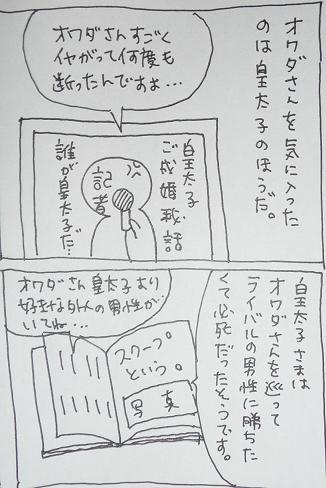 オワダさんを気に入った
のは皇太子のほうだ。
オワダさんすごく
イヤがって何度も
断ったんですよ…
皇太子
ご成婚秘話
記者
誰が皇太子だ…
皇太子さまは
オワダさんを巡って
ライバルの男性に勝ちた
くて必死だったそうです。
オワダさん皇太子より
好きな外人の男性が
いてね…
スクープ。
という。
写真